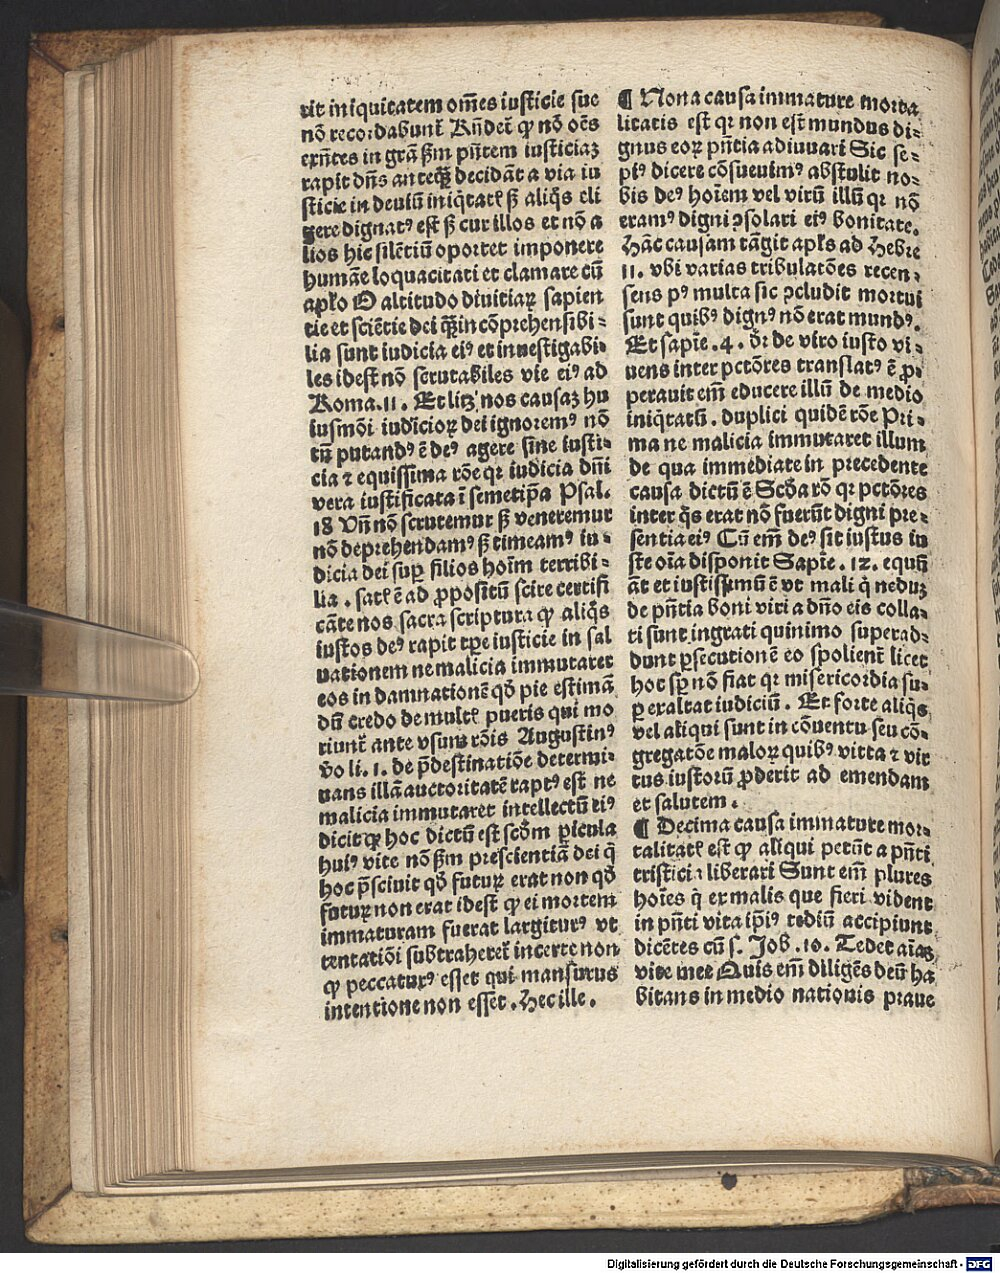 rit iniquitatem om̄es iusticie sue
nō recordabunt᷑ Rn̄det᷑ ꝙ nō oēs
exn̄tes in grā ẜm pn̄tem iusticiaꝫ
rapit dn̄s anteqꝫ̄ decidāt a via iu
sticie in deuiū iniq̇tatꝭ ẜꝫ aliq̇s eli
gere dignatꝰ est ẜꝫ cur illos et nō a
lios hic silētiū oportet imponere
humāe loquacitati et clamare cū
apl̄o O altitudo diuitiaꝝ sapien
tie et sciētie dei q̄ꝫ incōprehensibi⸗
lia sunt iudicia eiꝰ et inuestigabi⸗
les idest nō scrutabiles vie eiꝰ ad
Roma.11. Et licꝫ nos causaꝫ hu
iusmōi iudicioꝝ dei ignoremꝰ nō
tn̄ putandꝰ ē deꝰ agere sine iusti⸗
cia ⁊ equissima rōe qꝛ iudicia dn̄i
vera iustificata ī semetip̄a Psal.
18 Vn̄ nō scrutemur ẜꝫ veneremur
nō deprehendamꝰ ẜꝫ timeamꝰ iu⸗
dicia dei suꝑ filios hoīm terribi⸗
lia . satꝭ ē ad ꝓpositū scire certifi
cāte nos sacra scriptura ꝙ aliq̇s
iustos deꝰ rapit tꝑe iusticie in sal
uationem ne malicia immutaret
eos in damnationē qd̄ pie estimā
dū credo de multꝭ pueris qui mo
riunt᷑ ante vsum rōis Augustinꝰ
v̄o li. 1. de p̄destinatiōe determi⸗
nans illā auctoritatē raptꝰ est ne
malicia immutaret intellectū eiꝰ
dicit ꝙ hoc dictū est scḋm ꝑicula
huiꝰ vite nō ẜm prescientiā dei q̇
hoc p̄sciuit qd̄ futuꝝ erat non qd̄
futuꝝ non erat idest ꝙ ei mortem
immaturam fuerat largiturꝰ vt
tentatiōi subtraheret᷑ incerte non
ꝙ peccaturꝰ esset qui mansurus
intentione non esset . Hec ille .
¶ Nona causa immature morta
litatis est qꝛ non est mundus di⸗
gnus eoꝝ pn̄tia adiuuari Sic se⸗
piꝰ dicere cōsueuimꝰ abstulit no⸗
bis deꝰ hoīem vel virū illū qꝛ nō
eramꝰ digni ꝯsolari eiꝰ bonitate.
Hāc causam tāgit apl̄s ad Hebre
11. vbi varias tribulatōes recen⸗
sens pꝰ multa sic ꝯcludit mortui
sunt quibꝰ dignꝰ nō erat mundꝰ.
Et sapīe . 4 . dr̄ de viro iusto vi⸗
uens inter pctōres translatꝰ ē ꝓ⸗
perauit em̄ educere illū de medio
iniq̇tatū . duplici quidē rōe Pri⸗
ma ne malicia immutaret illum
de qua immediate in precedente
causa dictū ē Scḋa rō qꝛ pctōres
inter q̇s erat nō fuerūt digni pre⸗
sentia eiꝰ Cū em̄ deꝰ sit iustus iu
ste oīa disponit Sapīe . 12. equū
āt et iustissimū ē vt mali q̇ neduꝫ
de pn̄tia boni viri a dn̄o eis colla⸗
ti sunt ingrati quinimo superad⸗
dunt ꝑsecutionē eo spolient᷑ licet
hoc sꝑ nō fiat qꝛ misericordia su⸗
ꝑexaltat iudiciū . Et forte aliq̇s
vel aliqui sunt in cōuentu seu cō⸗
gregatōe maloꝝ quibꝰ vitta ⁊ vir
tus iustorū ꝓderit ad emendam
et salutem .
¶ Decima causa immature mor⸗
talitatꝭ est ꝙ aliqui petūt a pn̄ti
tristicia liberari Sunt em̄ plures
hoīes q̇ ex malis que fieri vident
in pn̄ti vita ip̄iꝰ tediū accipiunt
dicētes cū s. Job . 10. Tedet aīaꝫ
vite mee Quis em̄ diligēs deū ha
bitans in medio nationis praue
Digitalisierung gefördert durch die Deutsche Forschungsgemeinschaft - DFG